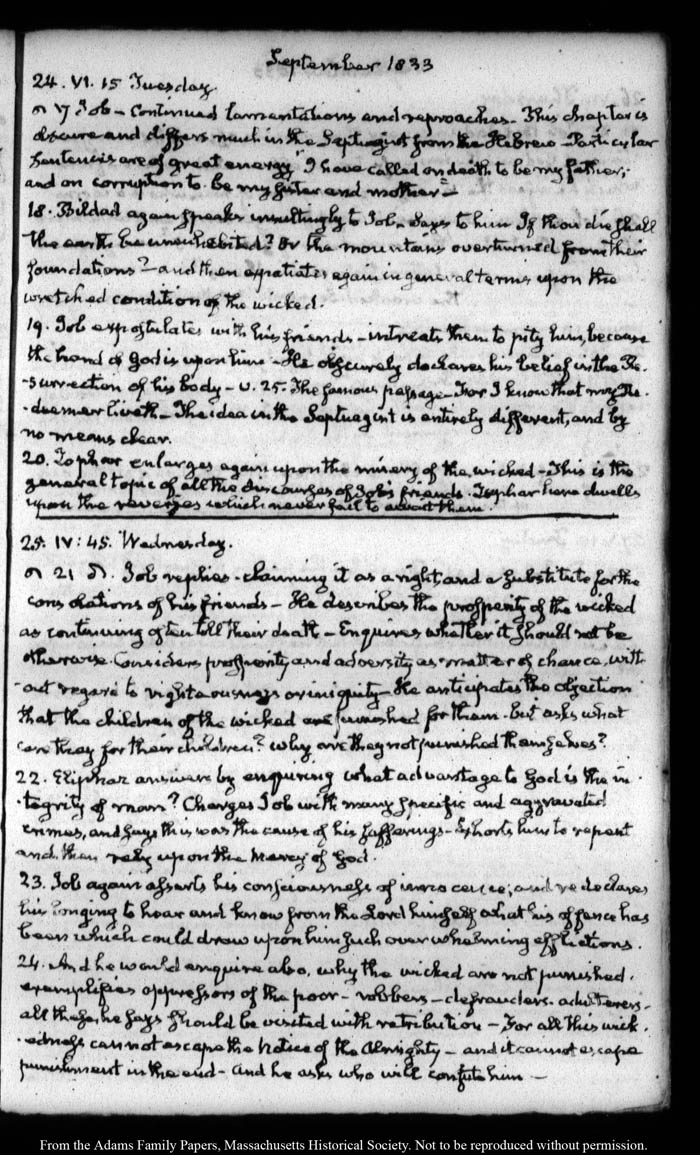 September 1833
24. VI. 15 Tuesday.
17 Job – Continued lamentations and reproaches – This chapter is
obscure and differs much in the Septuagint from the Hebrew – Particular
Sentences are of great energy "I have called on death to be my father;
and on corruption to be my sister and mother" –
18. Bildad again speaks insultingly to Job – Says to him If thou die shall
the earth be uninhabited? Or the mountains overturned from their
foundations? – and then expatiates again in general terms upon the
wretched condition of the wicked.
19. Job expostulates with his friends – intreats them to pity him, because
the hand of God is upon him – He obscurely declares his belief in the Re-
-surrection of his body – v. 25. The famous passage – For I know that my Re-
-deemer liveth – The idea in the Septuagint is entirely different, and by
no means clear.
20. Zophar enlarges again upon the misery of the wicked – This is the
general topic of all the discourses of Job's friends. Zophar here dwells
upon the reverses which never fail to await them.
25. IV: 45. Wednesday.
21 Job replies – claiming it as a right, and a substitute for the
consolations of his friends – He describes the prosperity of the wicked
as continuing often till their death – Enquires whether it should not be
otherwise. Considers prosperity and adversity as matter of chance, with-
-out regard to righteousness or iniquity – He anticipates the objection
that the children of the wicked are punished for them – but asks what
care they for their children? why are they not punished themselves?
22. Eliphaz answers by enquiring what advantage to God is the in-
-tegrity of man? Charges Job with many specific and aggravated
crimes, and says this was the cause of his sufferings – Exhorts him to repent
and then rely upon the Mercy of God.
23. Job again asserts his consciousness of innocence; and re declares
his longing to hear and know from the Lord himself what his offence has
been which could draw upon him such overwhelming afflictions.
24. And he would enquire also, why the wicked are not punished.
exemplifies oppressors of the poor – robbers – defrauders – adulterers –
all these he says should be visited with retribution – For all this wick-
-edness cannot escape the Notice of the Almighty – and it cannot escape
punishment in the end – and he asks who will confute him –
From the Adams Family Papers, Massachusetts Historical Society. Not to be reproduced without permission.